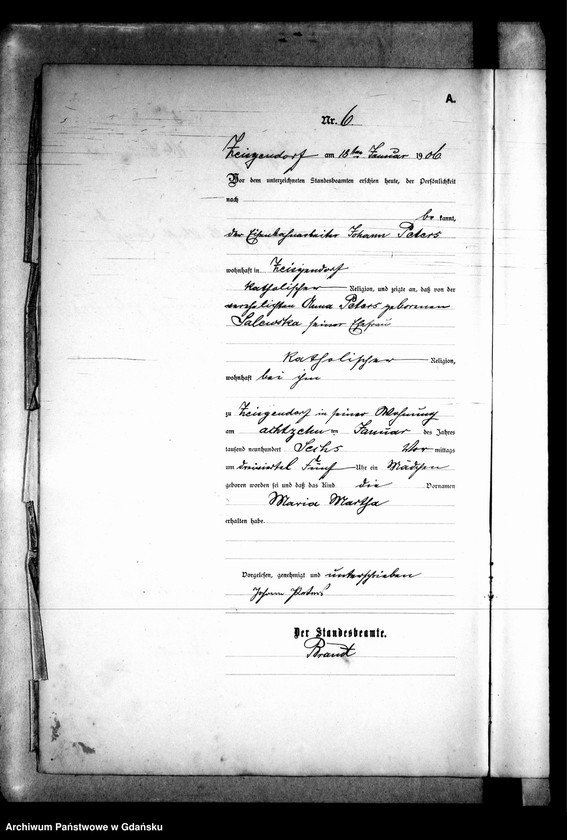 A.
Nr. 6
Zeisgendorf am 18ten Januar 1906
Vor dem unterzeichneten Standesbeamten erschien heute, der Persönlichkeit
nach
be kannt,
der Eisenbahnarbeiter Johann Peters
wohnhaft in Zeisgendorf
katholischer Religion, und zeigte an, daß von der
verehelichten Anna Peters geborenen
Salewska seiner Ehefrau
katholischer Religion,
wohnhaft bei ihm
zu Zeisgendorf in seiner Wohnung
am achtzehnten Januar des Jahres
tausend neunhundert Sechs Vor mittags
um dreiviertel Fünf Uhr ein Mädchen
geboren worden sei und daß das Kind die Vornamen
Maria Martha
erhalten habe.
Vorgelesen, genehmigt und unterschrieben
Johann Peters
Der Standesbeamte.
Brandt
Archiwum Państwowe w Gdańsku